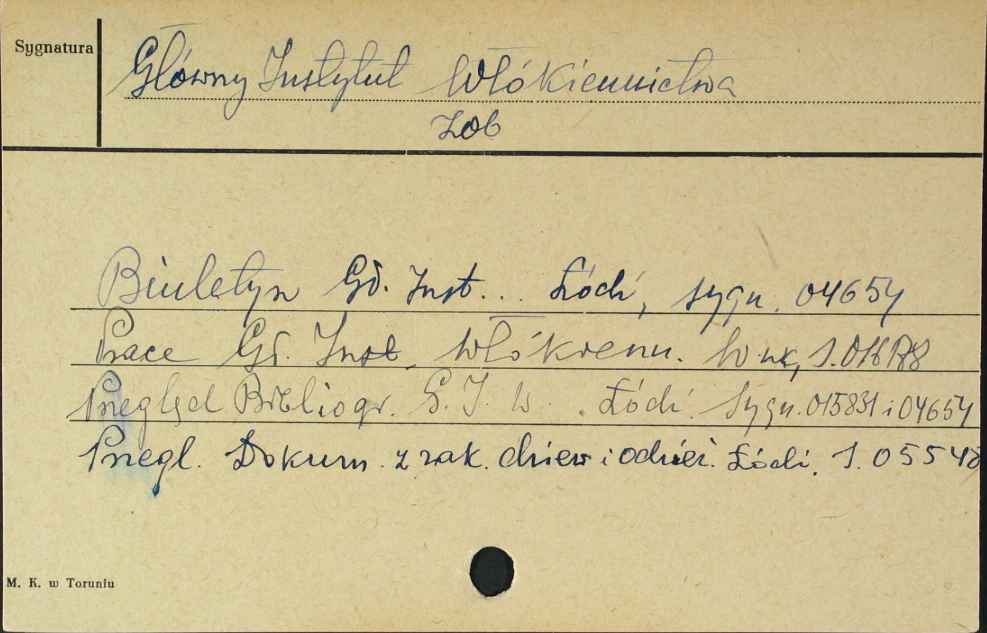 Sygnatura
Główny Instytut Włókiennictwa
zob
Biuletyn Gł. Inst... Łódź, sygn. 04654
Prace Gł. Inst. Włókienn. S.
Przegląd Bibliogr. G. I. W. Łódź. Sygn. 015831 i 04654
Przegl. Dokum. z zak. dziew i odzież. Łódź. S. 05548
M. K. w Toruniu